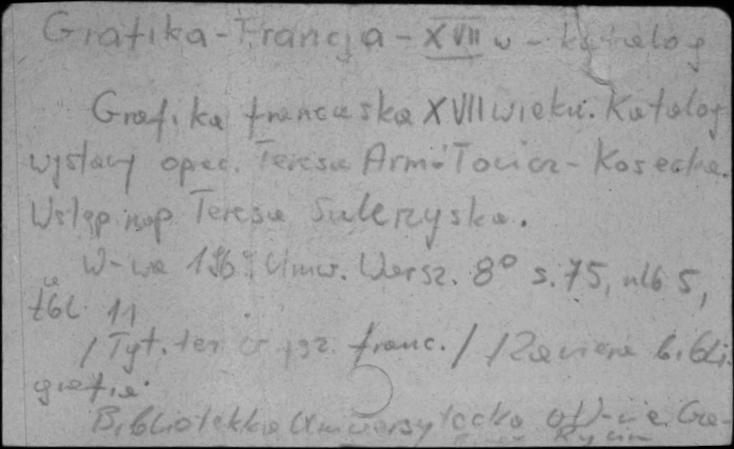 Grafika - Francja - XVII w - katalog
Grafika francuska XVII wieku. Katalog
wystawy oprac. Teresa Armółowicz - Kosecka.
Wstęp nap. Teresa Sulerzyska.
W-wa Uniw. Warsz. 8° s. 75, nlb 5,
tbl. 11
/Tyt. też w jęz. franc./ /Zawiera bibli
grafia.
Biblioteka Uniwersytecka w W-wie. Ga-
Rycin